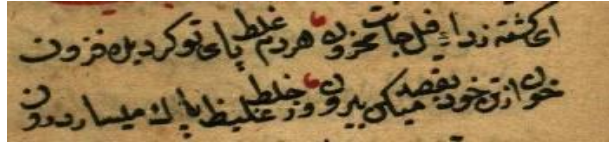 ای کشته ز داء فیل جانت محزون هر دم غلظ پای تو کردیده فزون
خون از تن خود بفصد میکن بیرون وز خلط غلیظ پاک میساز درون